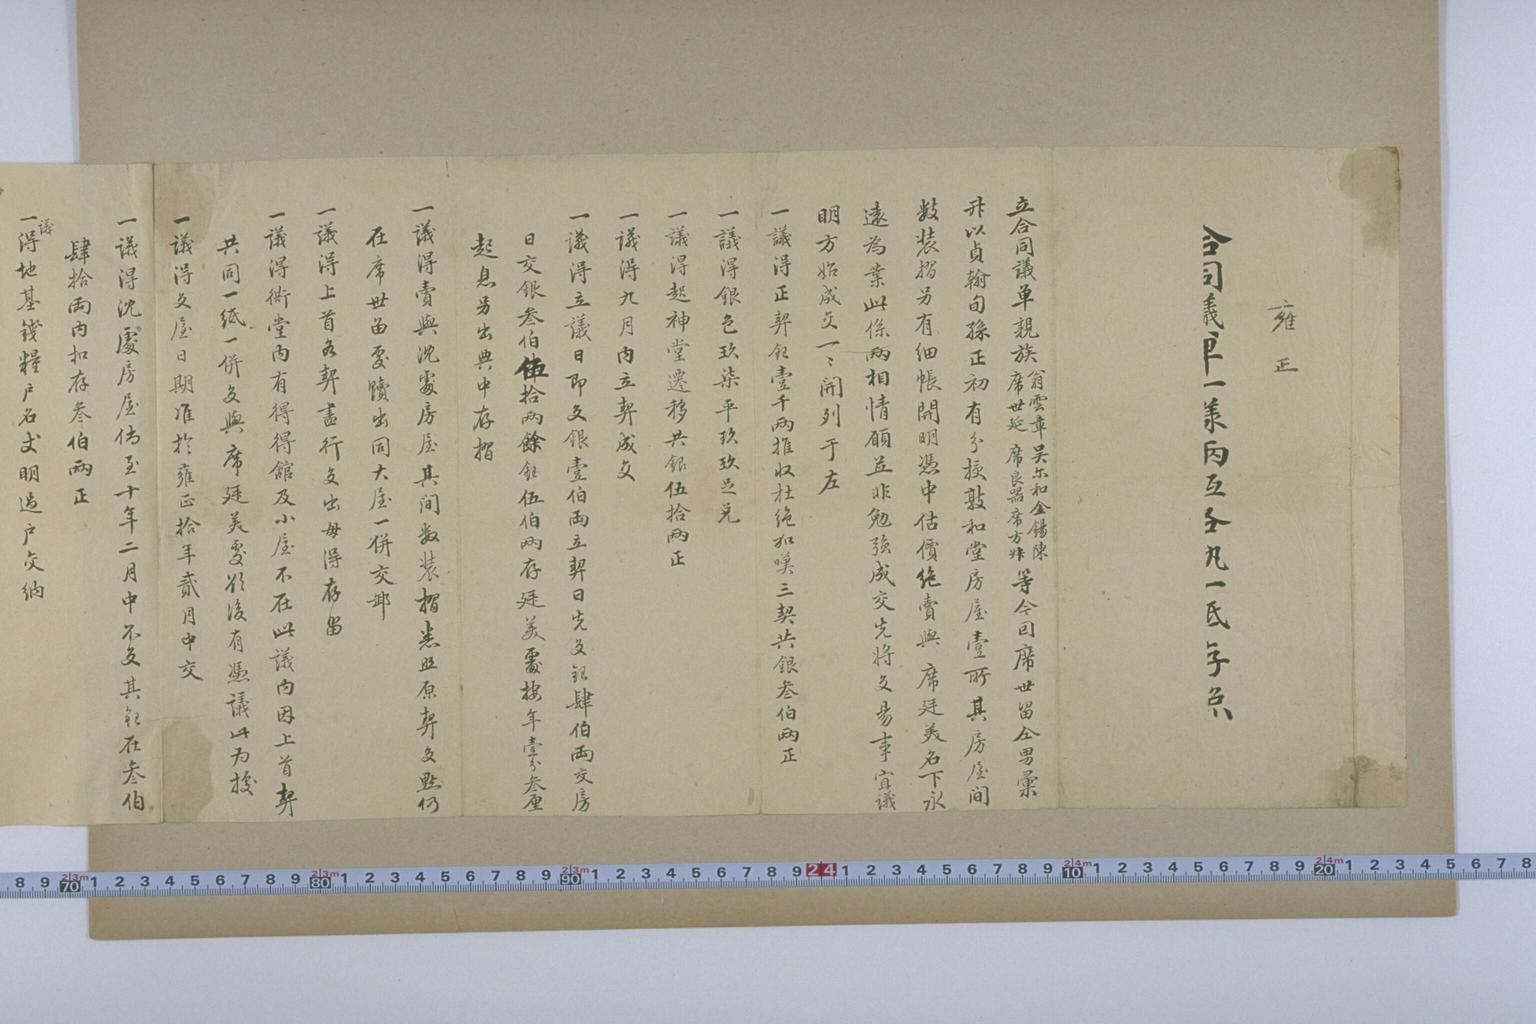 雍
正
合同議單一樣兩互仝
立合同議單親族翁雲章 吳尔和 金錫陳 席世廷 席良器 席方 等今因席世留仝男
以貞翰旬孫正初有分授敦和堂房屋壹所其房屋間
数裝摺另有细帳開明憑中估價絶賣與 席廷美名下永
遠為業此係兩相情願並非勉强成交先將交易事宜議
明方始成交一一開列于左
一議得正契銀壹千兩推收杜絶如嘆三契共銀叁伯兩正
一議得銀色玖柒平玖玖足兑
一議得起神堂遷移共銀伍拾兩正
一議得九月内立契成交
一議得立議日即交銀壹伯兩立契日先交銀肆伯兩交房
日交銀叁伯伍拾兩餘銀伍伯兩存廷美處按年壹分叁厘
起息另出典中存摺
一議得賣與沈處房屋其间数裝摺悉照原契交點仍
在席世留處贖出同大屋一併交卸
一議得上首各契盡行交出毋得存留
一議得衖堂内有得得舘及小屋不在此議内因上首契
共同一紙一併交與席廷美處後有憑議此为據
一議得交屋日期准於雍正拾年貳月中交
一議得沈處房屋倘至十年二月中不交其銀在叁伯
肆拾兩内扣存叁伯兩正
一議得地基錢糧户名丈明過户交納